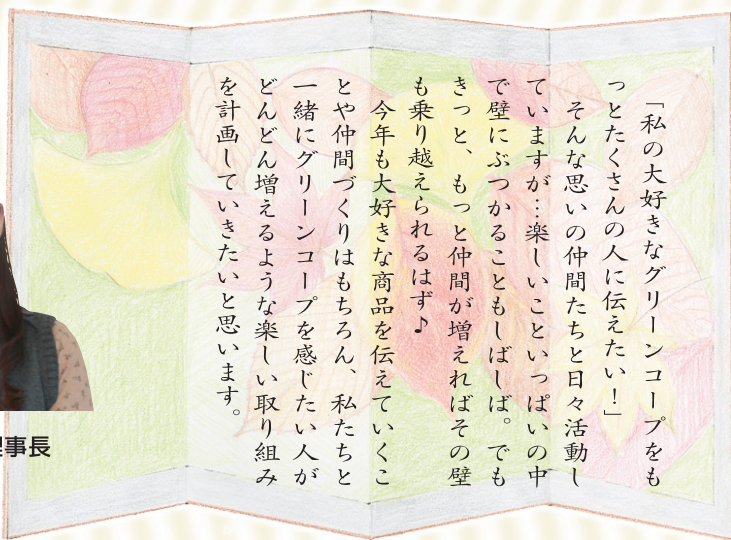 「私の大好きなグリーンコープをも
っとたくさんの人に伝えたい！」
そんな思いの仲間たちと日々活動し
ていますが…楽しいこといっぱいの中
で壁にぶつかることもしばしば。でも
きっと、もっと仲間が増えればその壁
も乗り越えられるはず♪
今年も大好きな商品を伝えていくこ
とや仲間づくりはもちろん、私たちと
一緒にグリーンコープを感じたい人が
どんどん増えるような楽しい取り組み
を計画していきたいと思います。
理事長